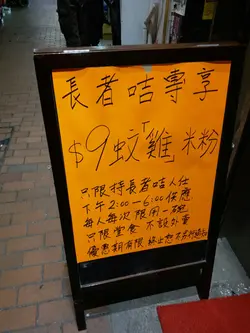 長者咭專享
$9蚊「雞」米粉
只限持長者咭人仕
下午2:00-6:00供應
每人每次限用一碗
只限堂食 不設外賣
優惠期有限 終止恕不另行通知